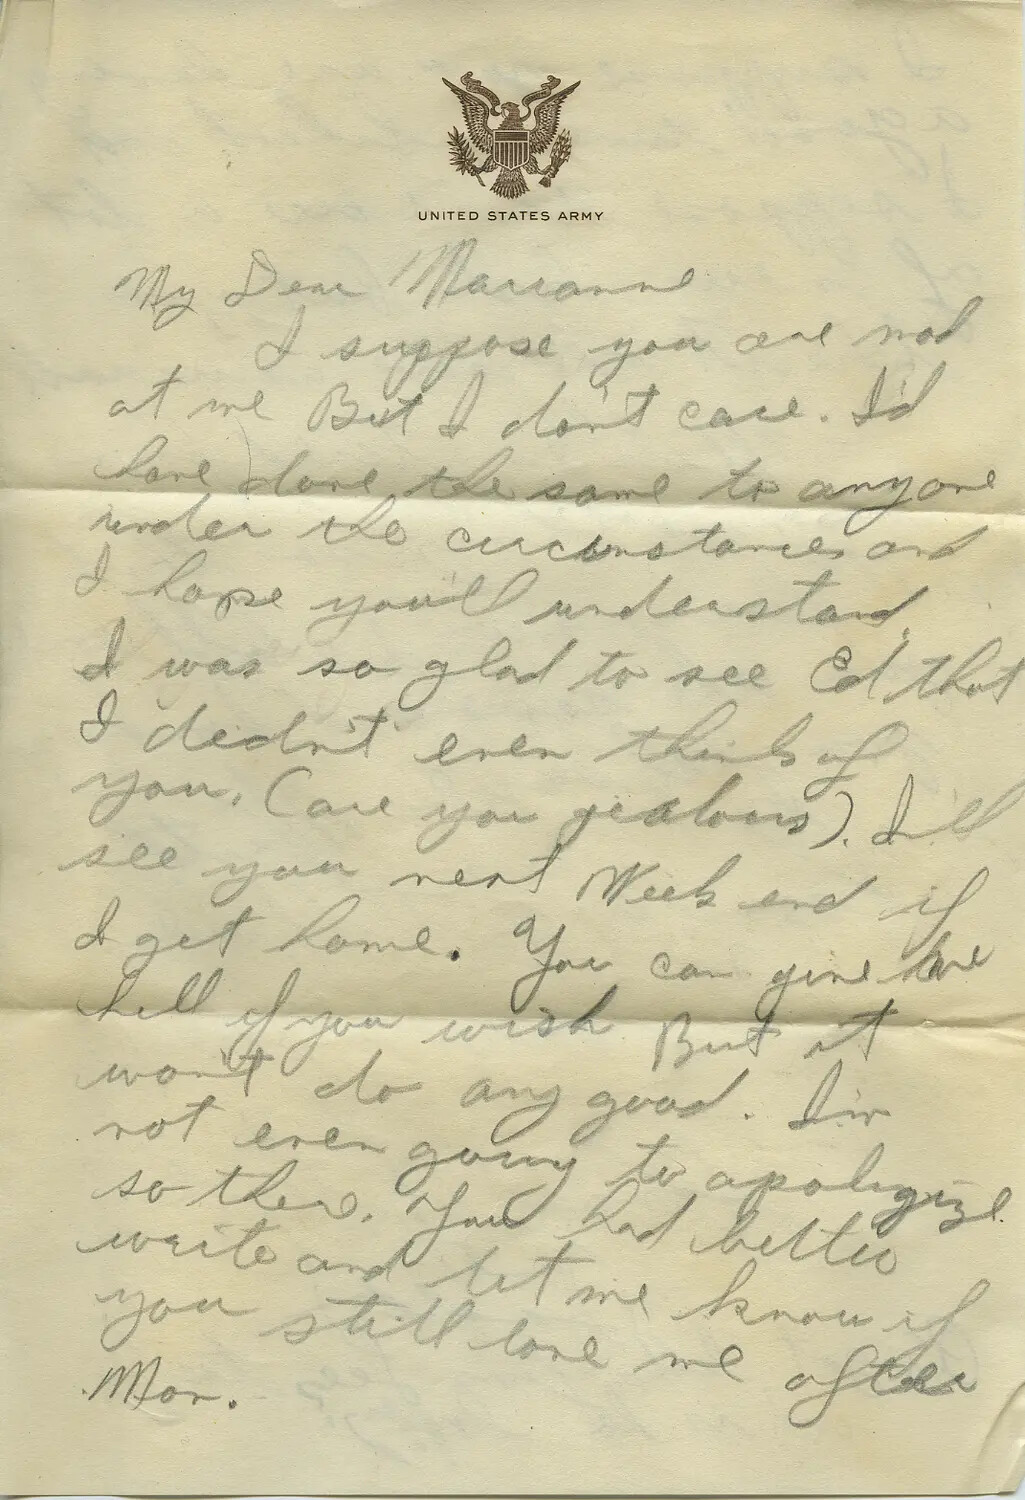 UNITED STATES ARMY
My Dear Marianne
I suppose you are mad
at me But I don't care. I'd
have done the same to anyone
under the circumstances and
I hope you'll understand.
I was so glad to see Ed that
I didn't even think of
you. (are you jealous). I'll
see you next Week end if
I get home. You can give me
hell if you wish But it
won't do any good. I'm
not even going to apoligize
so there. You had better
write and let me know if
you still love me after
Mon.